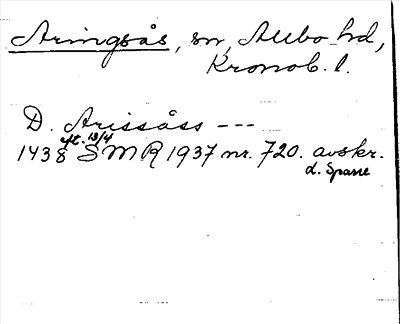 Aringsås, sn, Allbo hd,
Kronob. l.
D. Arissåss ---
eft. 13/4
1438 SMR 1937 nr. 720. avskr.
d. Sparre